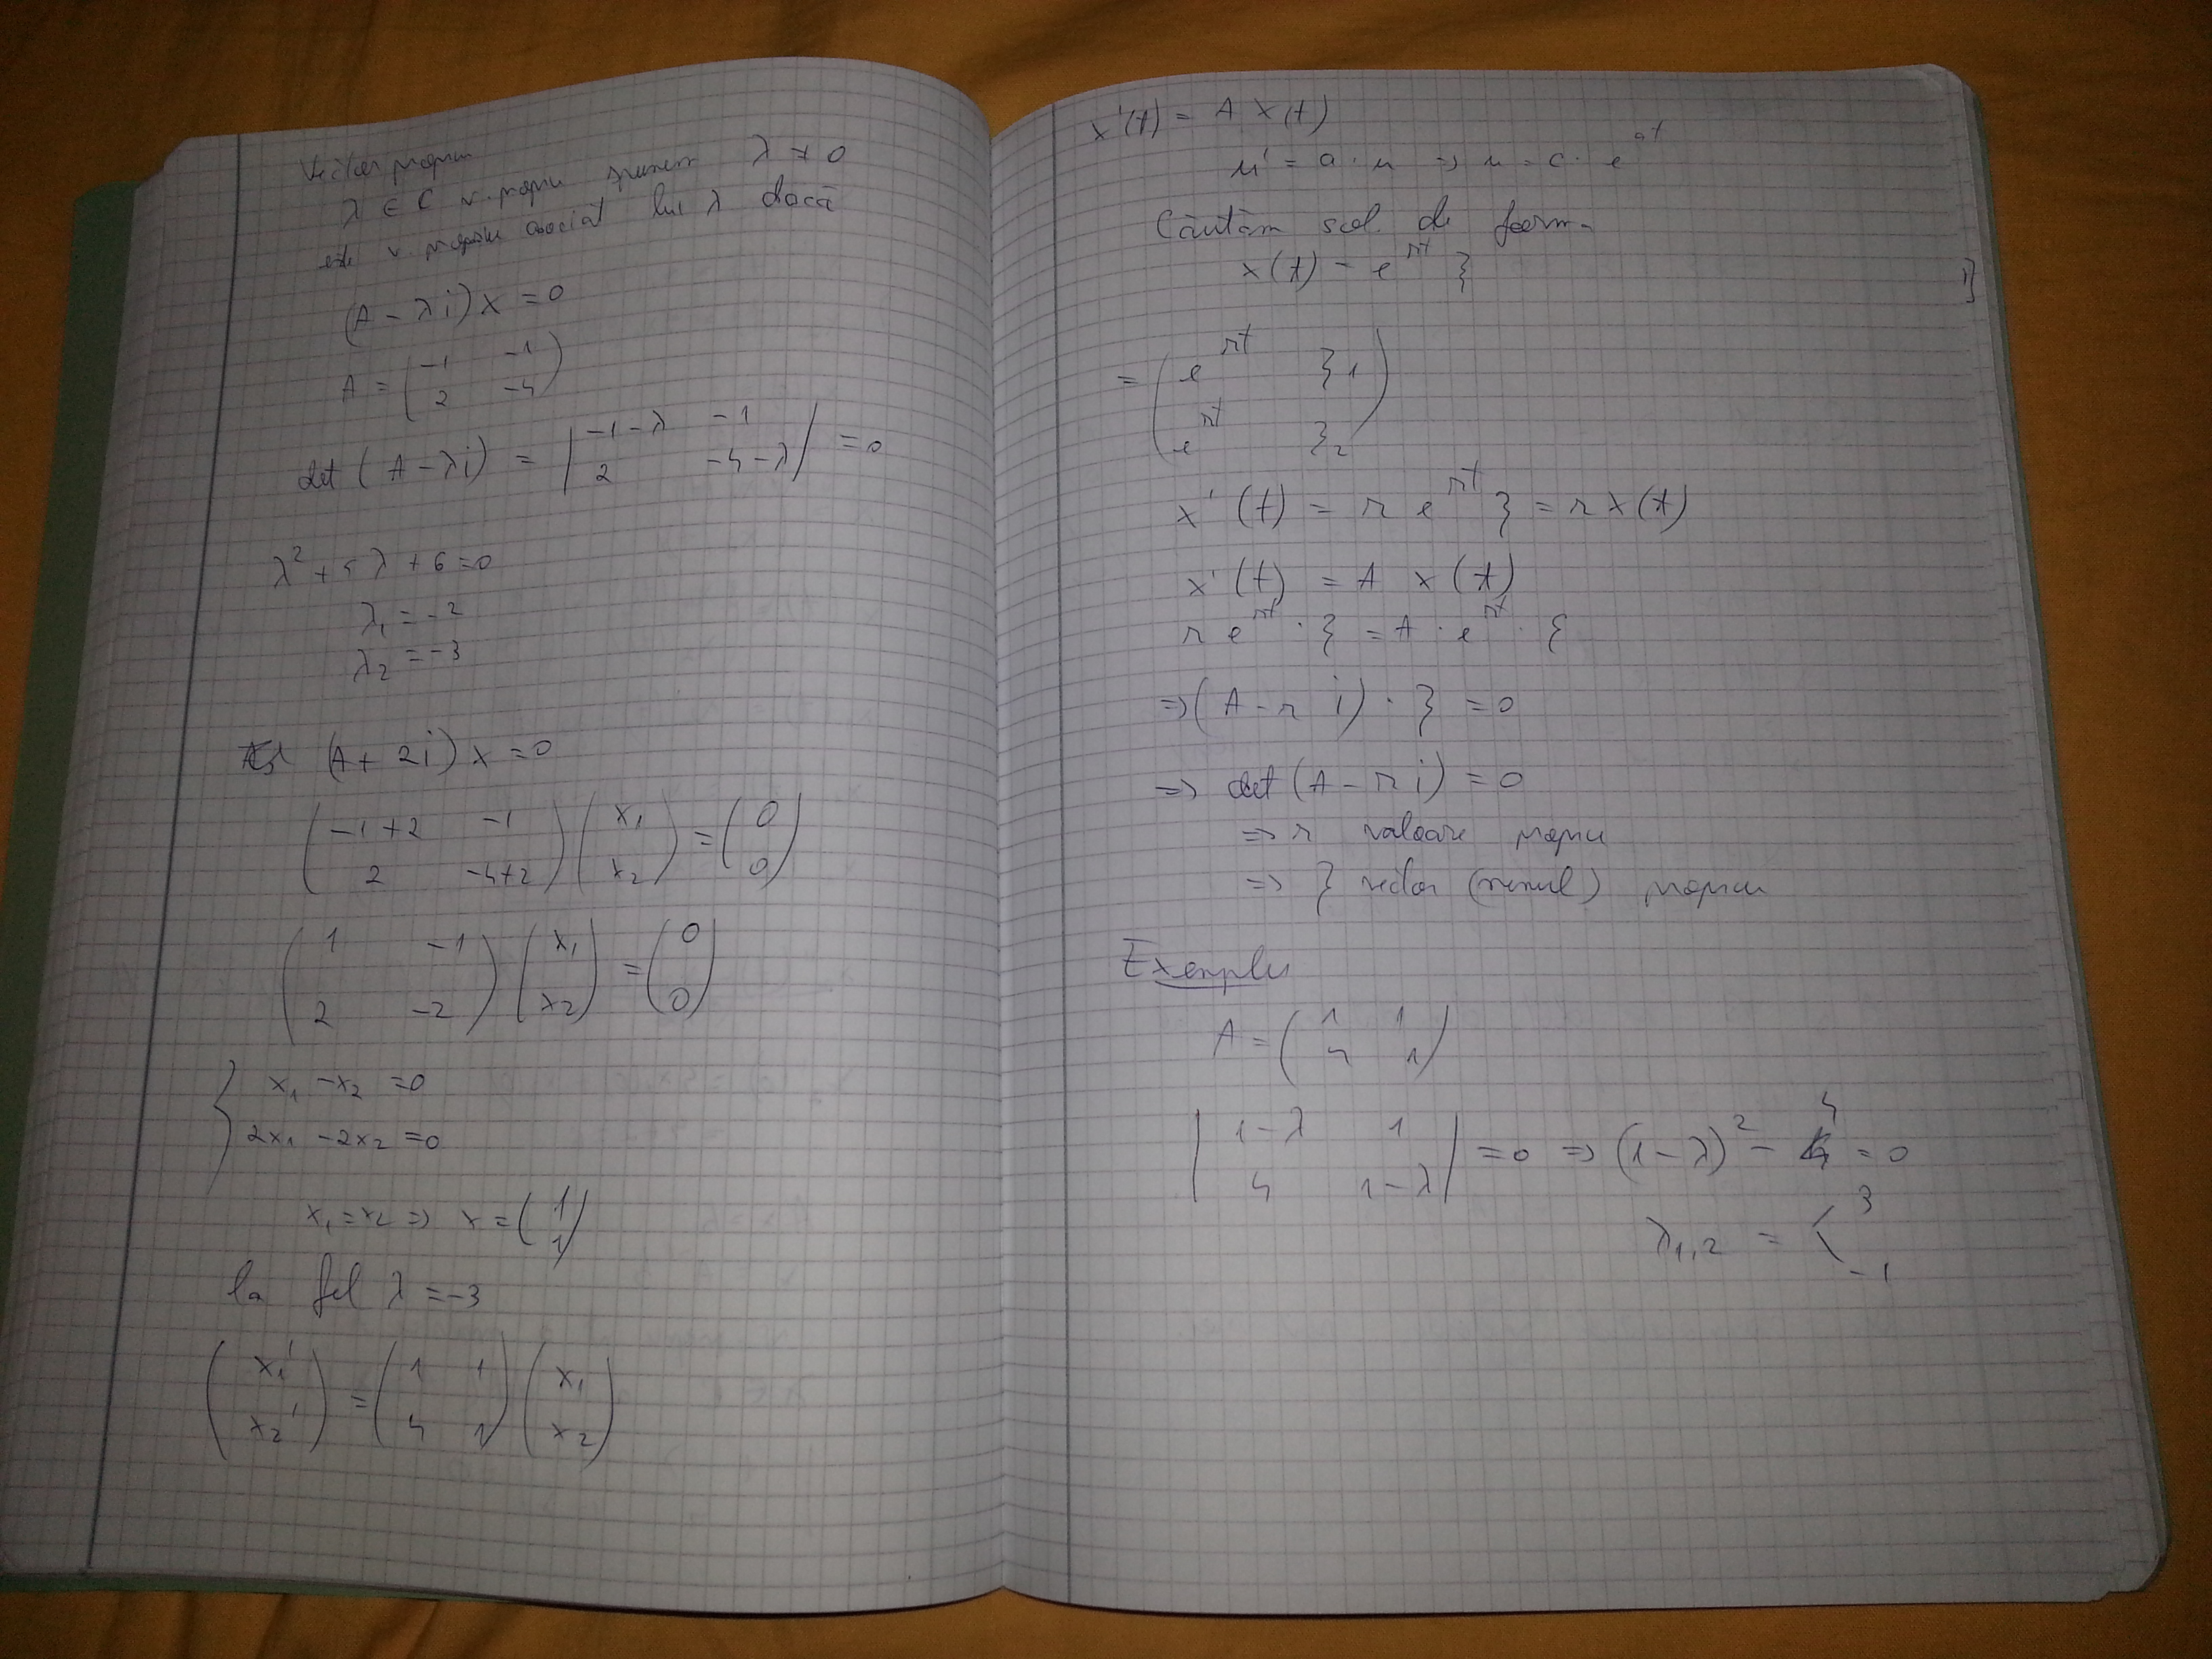 Vector propriu
λ ∈ C v. propriu spunem λ ≠ 0
este v. propriu asociat lui λ dacă
(A - λi) x = 0
A = ( -1 -1
2 -4 )
det (A - λi) = | -1-λ -1
2 -4-λ | = 0
λ² + 5λ + 6 = 0
λ₁ = -2
λ₂ = -3
(A + 2i) x = 0
( -1+2 -1
2 -4+2 ) ( x₁
x₂ ) = ( 0
0 )
( 1 -1
2 -2 ) ( x₁
x₂ ) = ( 0
0 )
{ x₁ - x₂ = 0
2x₁ - 2x₂ = 0
x₁ = x₂ => x = ( 1
1 )
la fel λ = -3
( x₁'
x₂' ) = ( 1 1
4 1 ) ( x₁
x₂ )
x'(t) = A x(t)
u' = a · u => u = c · e^at
Căutăm sol. de form.
x(t) = e^rt }
= ( e^rt }₁
e^rt }₂ )
x'(t) = r e^rt } = r x(t)
x'(t) = A x(t)
r e^rt · } = A · e^rt · {
=> (A - r i) · } = 0
=> det (A - r i) = 0
=> r valoare propriu
=> } vector (nenul) propriu
Exemplu
A = ( 1 1
4 1 )
| 1-λ 1
4 1-λ | = 0 => (1-λ)² - 4 = 0
λ₁,₂ = < 3
-1